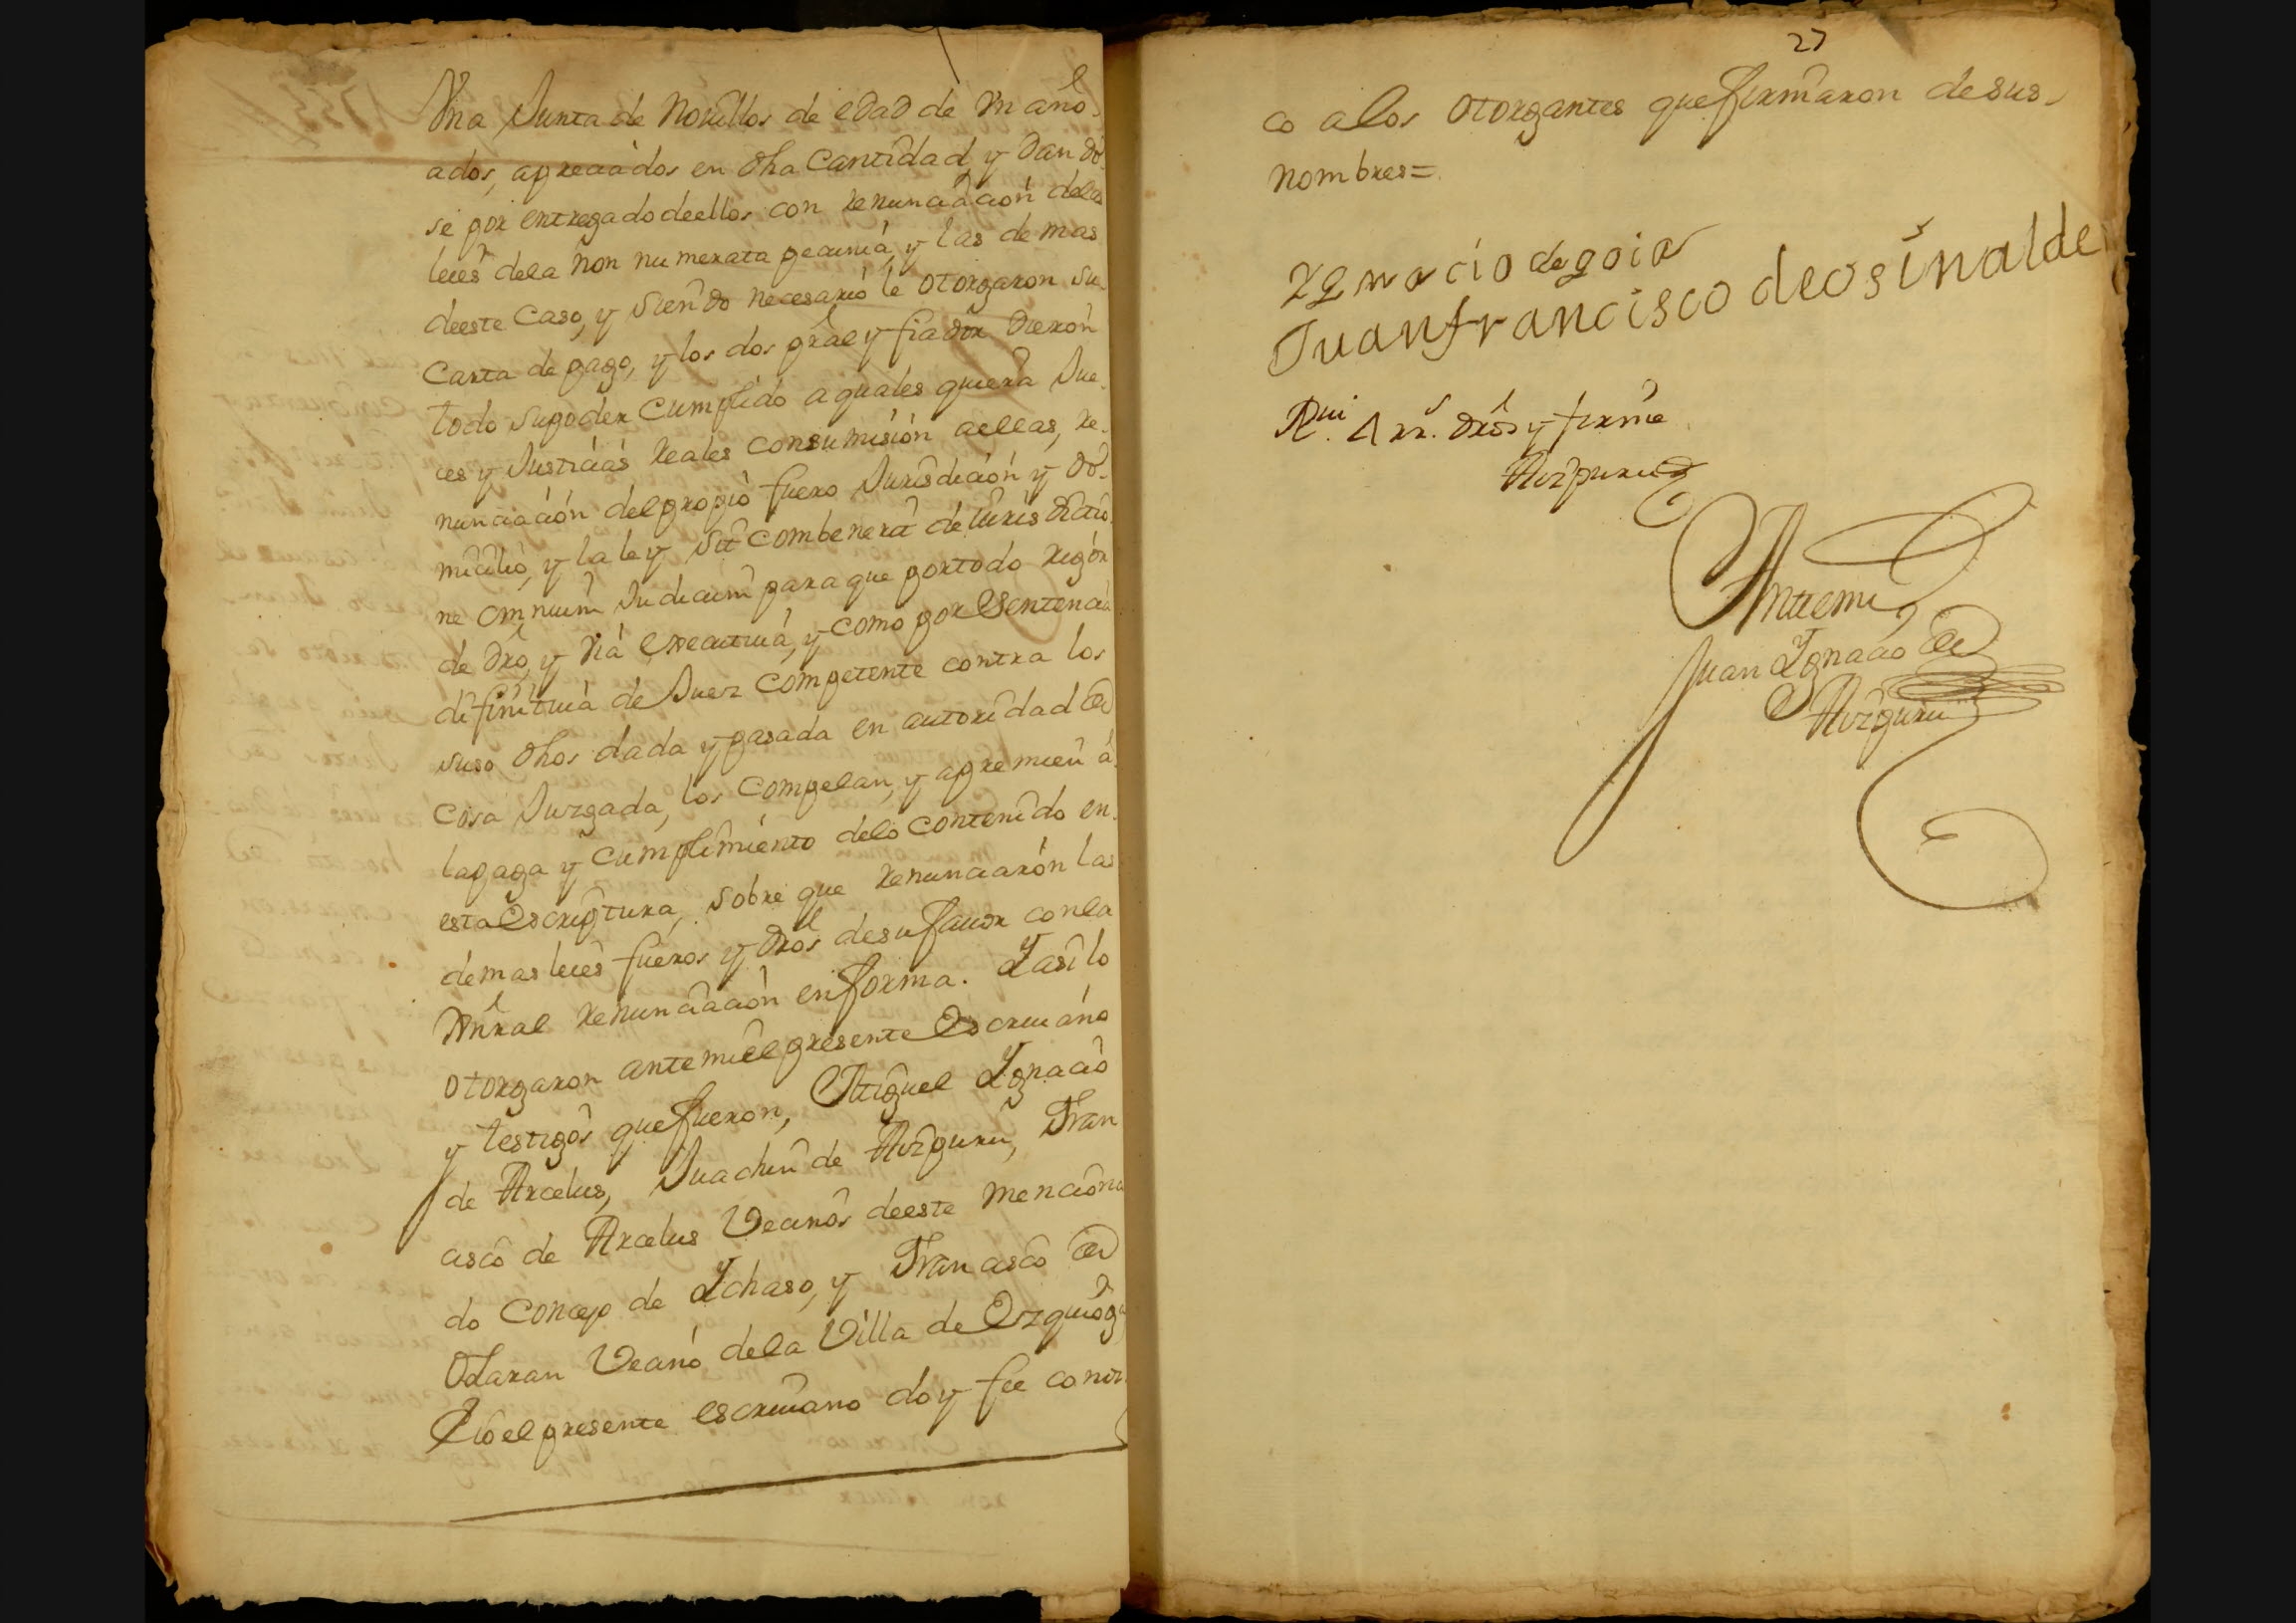 Vna Junta de Nouillos de edad de Vn año
ados, apreciados en dha Cantidad y dando
se por entregado deellos con renunciacion delas
leies dela non numerata pecunia, y las demas
deeste Caso, y siendo necesario le otorgaron su
Carta de pago, y los dos pral y fiador dieron
todo supoder Cumplido aquales quiera Jue-
ces y Justicias reales consumision aellas, re-
nunciacion delpropio fuero Jurisdicion y do-
micilio, y la ley sit combenerit de iuris dictio
ne omnium Judicum para que portodo rigor
de dro, y via executiua, y como por Sentencia
difinitiua de Juez Competente contra los
suso dhos dada y pasada en autoridad de
Cosa Juzgada, los Compelan, y apremien a
lapaga y Cumplimiento delo contenido en
esta escriptura, sobre que renunciaron las
demas leies fueros y dros desufauor conla
Gnral renunciacion enforma. Yasi lo
otorgaron antemi el presente Escriuano
y testigos quefueron, Miguel Ygnacio
de Arcelus, Juachin de Aizpuru, Fran
cisco de Arcelus Vecinos deeste menciona
do Concejo de Ychaso, y Francisco de
Odaran Vecino dela Villa de Ezquioga
E io el presente escriuano doy fee conoz
27
co alos otorgantes quefirmaron desus
nombres=
Ygnacio de goia
Juanfrancisco deosinalde
Rui 4 rr. dros y firme
Aizpuru
Antemi
Juan Ygnacio de
Aizpuru